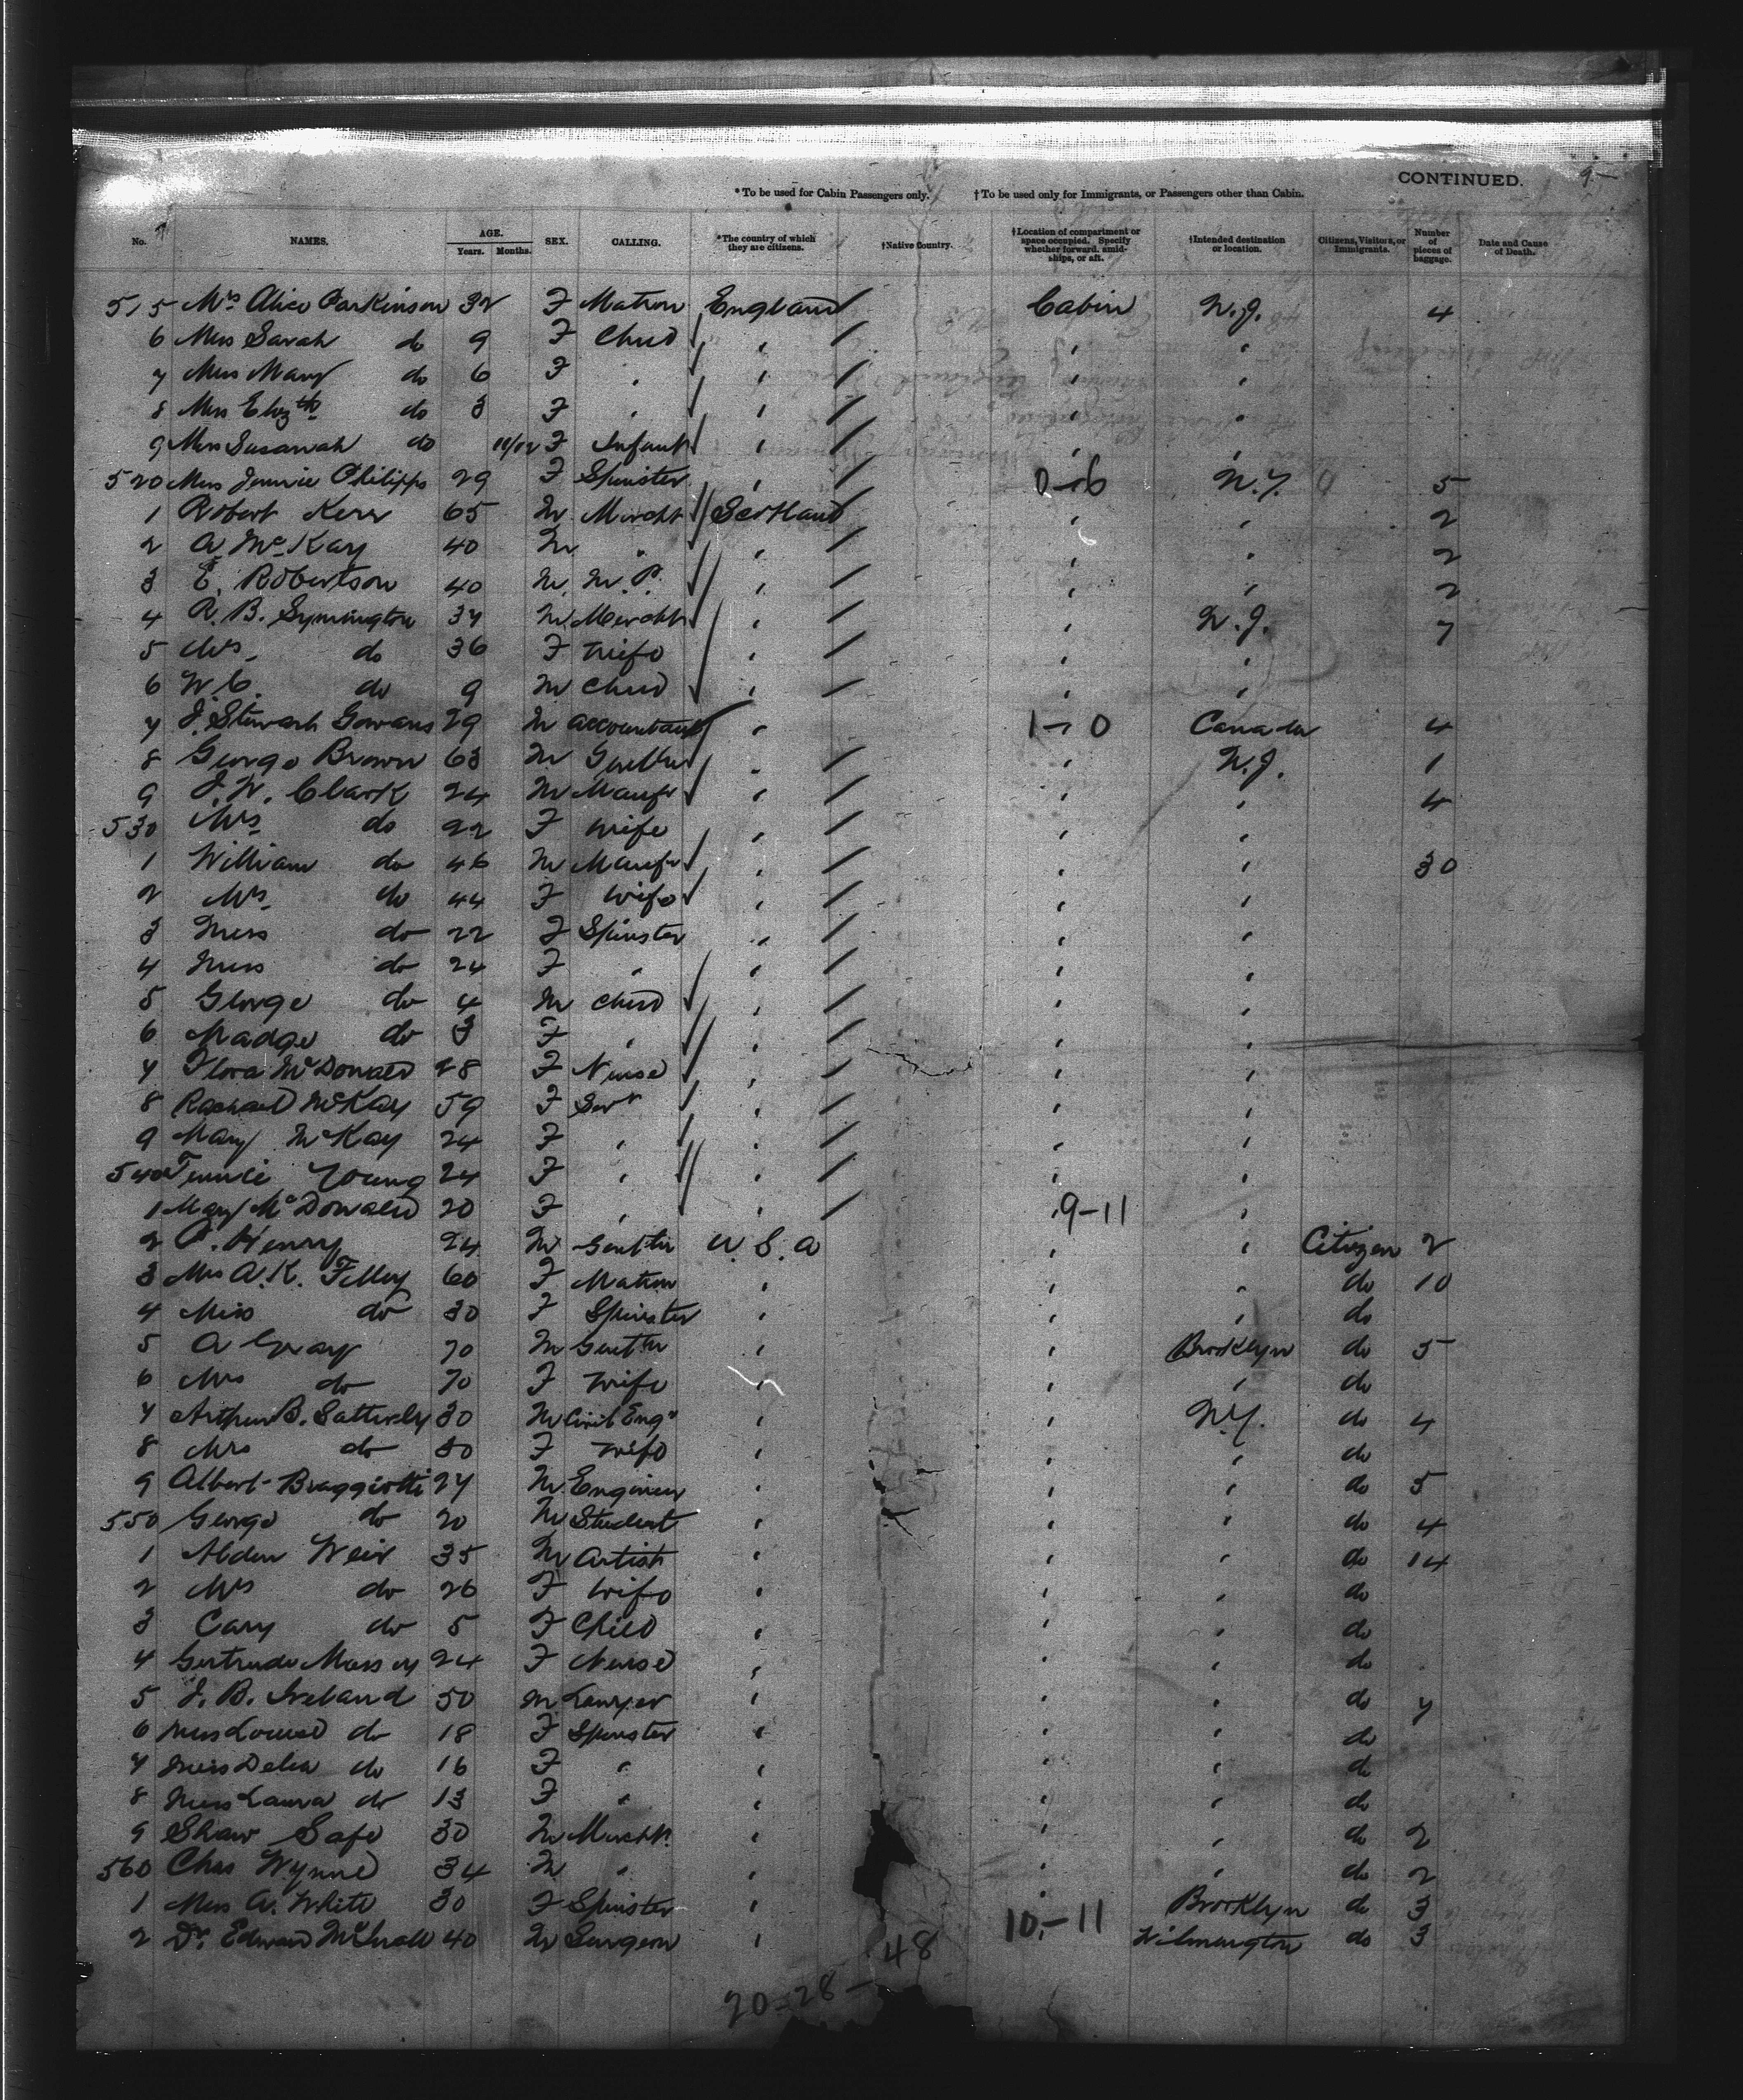 CONTINUED. 9-
*To be used for Cabin Passengers only. †To be used only for Immigrants, or Passengers other than Cabin.
No. NAMES. AGE. Years. Months. SEX. CALLING. *The country of which they are citizens. †Native Country. †Location of compartment or space occupied. Specify whether forward, amidships, or aft. †Intended destination or location. Citizens, Visitors, or Immigrants. Number of pieces of baggage. Date and Cause of Death.
515 Mrs Alice Parkinson 32 F Matron England / Cabin N.J. 4
6 Miss Sarah do 9 F Child " / " "
7 Miss Mary do 6 F " " / " "
8 Miss Elizth do 3 F " " / " "
9 Miss Susannah do 11/12 F Infant " / " "
520 Miss Jennie Philipps 29 F Spinster " / 0-16 N.Y. 5
1 Robert Kerr 65 M Mercht Scotland / " " 2
2 A McKay 40 M " " / " " 2
3 E. Robertson 40 M M.P. " / " " 2
4 A. B. Symington 37 M Mercht " / " N.J. 7
5 Mrs do 36 F Wife " / " "
6 W. C. do 9 M Child " / " "
7 J. Stewart Gowans 29 M Accountant " 1-10 Canada 4
8 George Brown 63 M Gentln " / " N.J. 1
9 J. W. Clark 24 M Manfr " / " " 4
530 Mrs do 22 F Wife " / " "
1 William do 46 M Manfr " / " " 30
2 Mrs do 44 F Wife " / " "
3 Miss do 22 F Spinster " / " "
4 Miss do 24 F " " / " "
5 George do 4 M Child " / " "
6 Madge do 3 F " " / " "
7 Flora McDonald 28 F Nurse " / " "
8 Rachael McKay 59 F Servt " / " "
9 Mary McKay 24 F " " / " "
540 Young 24 F " " / " "
1 Mary McDonald 20 F " " / 9-11 "
2 P. Henry 24 M Gentln U.S.A " " Citizen 2
3 Mrs A. K. 60 F Matron " " " do 10
4 Miss do 30 F Spinster " " " do
5 A Gray 70 M Gentln " " Brooklyn do 5
6 Mrs do 70 F Wife " " " do
7 Arthur B. Satterly 30 M Civil Engr " " N.Y. do 4
8 Mrs do 30 F Wife " " " do
9 Albert Braggiotti 27 M Engineer " " " do 5
550 George do 20 M Student " " " do 4
1 Alden Weir 35 M Artist " " " do 14
2 Mrs do 26 F Wife " " " do
3 Cary do 5 F Child " " " do
4 Gertrude Massey 24 F Nurse " " " do
5 J. B. Ireland 50 M Lawyer " " " do 7
6 Miss Louise do 18 F Spinster " " " do
7 Miss Delia do 16 F " " " " do
8 Miss Laura do 13 F " " " " do
9 Shaw Safe 30 M Mercht " " " do 2
560 Chas Wynne 34 M " " " " do 2
1 Miss A. White 30 F Spinster " " Brooklyn do 3
2 Dr. Edward 40 M Surgeon " 10-11 Wilmington do 3
20-28-48